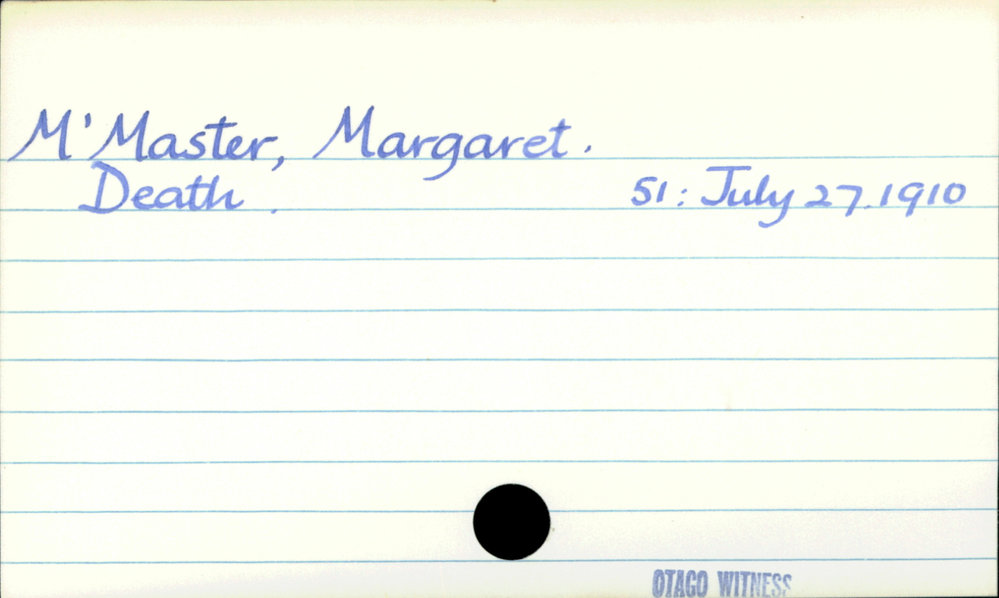 M'Master, Margaret.
Death. 51: July 27. 1910
OTAGO WITNESS